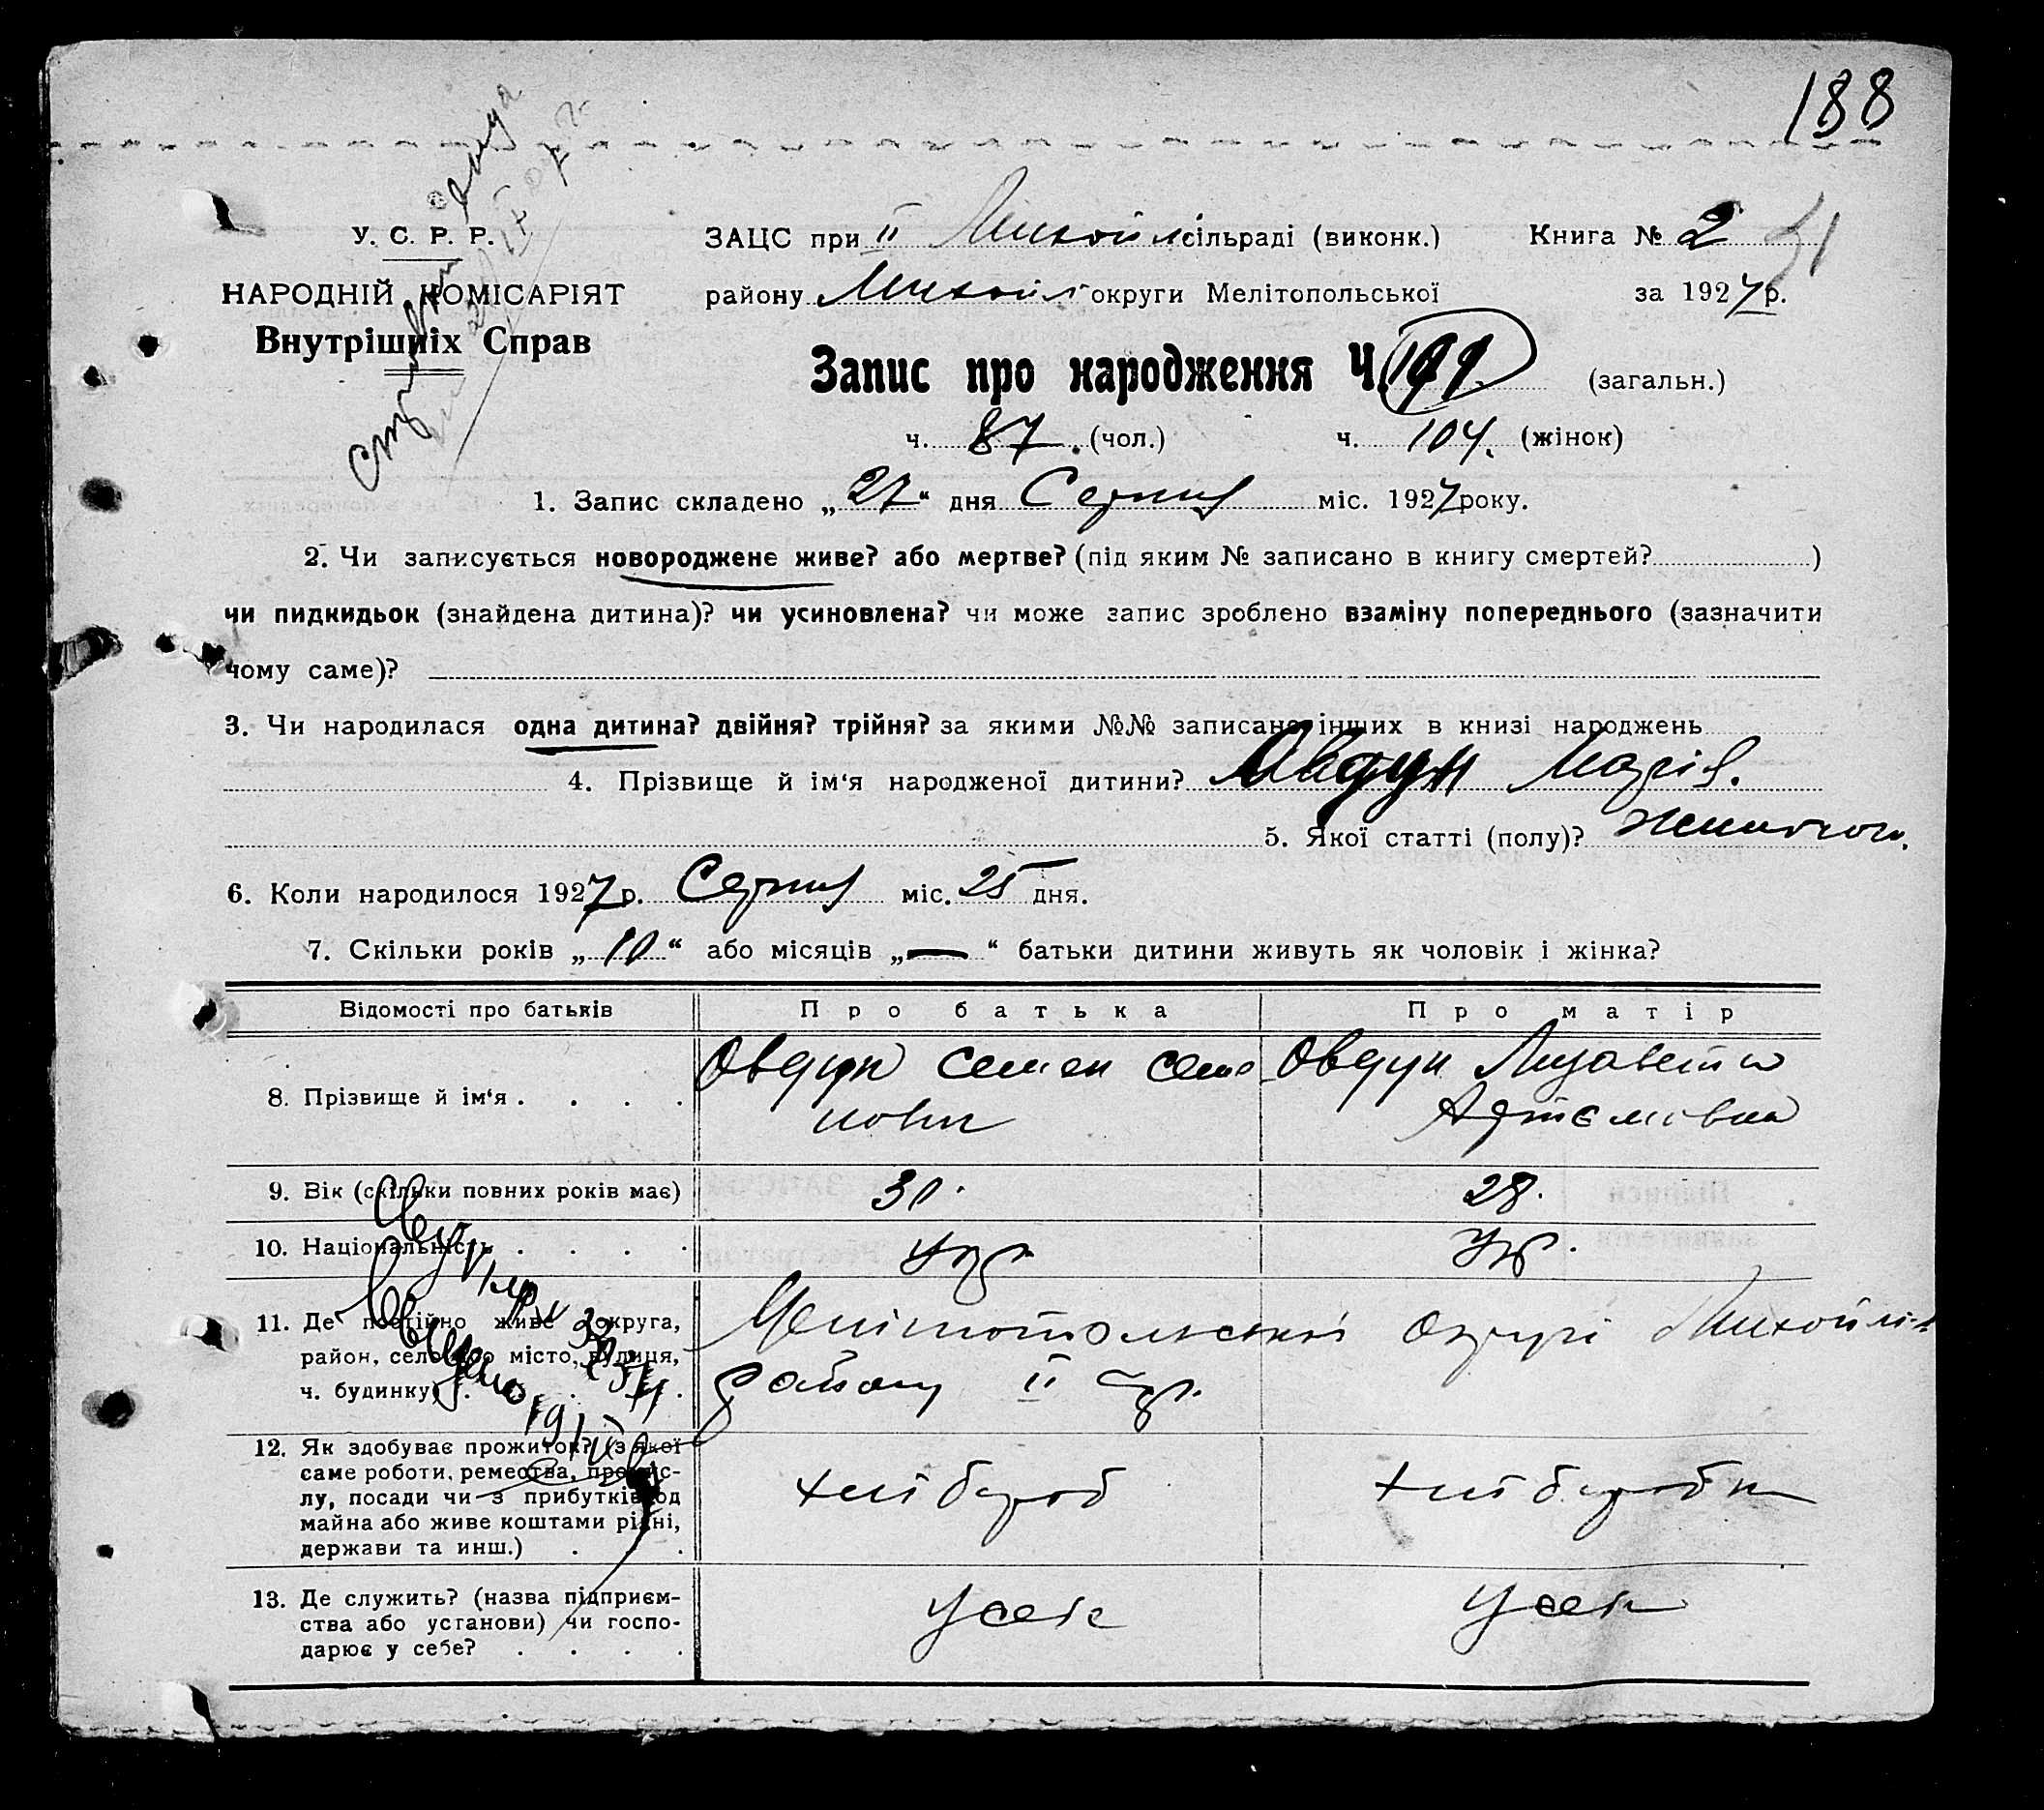 188
У. С. Р. Р.
НАРОДНІЙ КОМІСАРІЯТ
Внутрішніх Справ
ЗАЦС при II Михайл сільраді (виконк.) Книга № 2
району Михайл округи Мелітопольської за 1927 р.
Запис про народження Ч. 191. (загальн.)
ч. 87. (чол.) ч. 104. (жінок)
1. Запис складено „27“ дня Серпня міс. 1927 року.
2. Чи записується новороджене живе? або мертве? (під яким № записано в книгу смертей? )
чи пидкидьок (знайдена дитина)? чи усиновлена? чи може запис зроблено взаміну попереднього (зазначити
чому саме)?
3. Чи народилася одна дитина? двійня? трійня? за якими №№ записано інших в книзі народжень
4. Прізвище й ім‘я народженої дитини? Овдун Марія.
5. Якої статті (полу)?
6. Коли народилося 1927 р. Серпня міс. 25 дня.
7. Скільки років „10“ або місяців „—“ батьки дитини живуть як чоловік і жінка?
Відомості про батьків Про батька Про матір
8. Прізвище й ім‘я . . . . Овдун Семен Семе- Овдун Лизавета
нови Артємівна
9. Вік (скільки повних років має) 30. 28.
10. Національність . . . . Укр. Укр.
11. Де постійно живе (округа,
район, село або місто, вулиця,
ч. будинку) . . . .
Мелітопольської округи Михайлів
району II
12. Як здобуває прожиток? (з якої
саме роботи, ремества, промис-
лу, посади чи з прибутків од
майна або живе коштами рідні,
держави та инш.) . . .
хлібороб хлібаробка
13. Де служить? (назва підприєм-
ства або установи) чи госпо-
дарює у себе? . . . .
У себе У себе